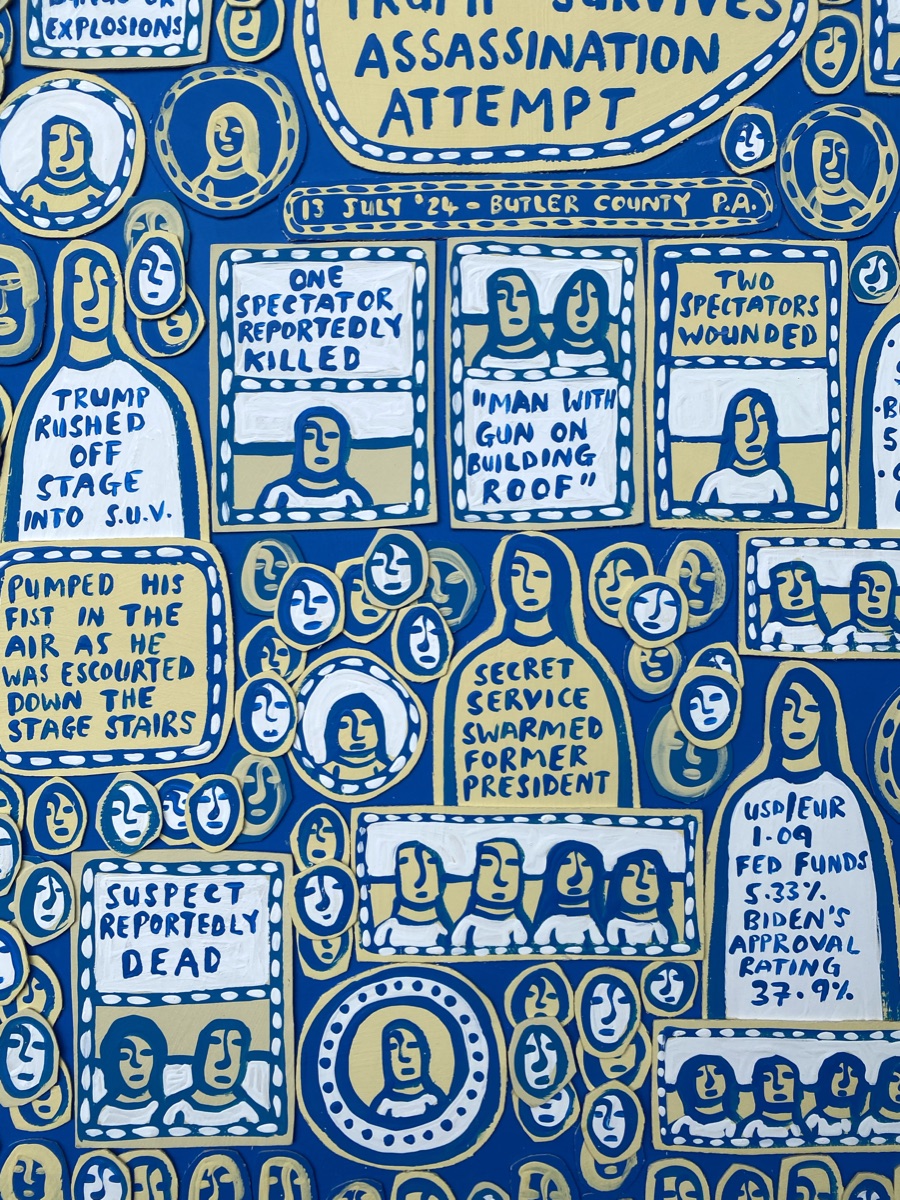 EXPLOSIONS
TRUMP SURVIVES
ASSASSINATION
ATTEMPT
13 JULY '24 - BUTLER COUNTY P.A.
ONE
SPECTATOR
REPORTEDLY
KILLED
"MAN WITH
GUN ON
BUILDING
ROOF"
TWO
SPECTATORS
WOUNDED
TRUMP
RUSHED
OFF
STAGE
INTO S.U.V.
PUMPED HIS
FIST IN THE
AIR AS HE
WAS ESCOURTED
DOWN THE
STAGE STAIRS
SECRET
SERVICE
SWARMED
FORMER
PRESIDENT
USD/EUR
1.09
FED FUNDS
5.33%
BIDEN'S
APPROVAL
RATING
37.9%
SUSPECT
REPORTEDLY
DEAD